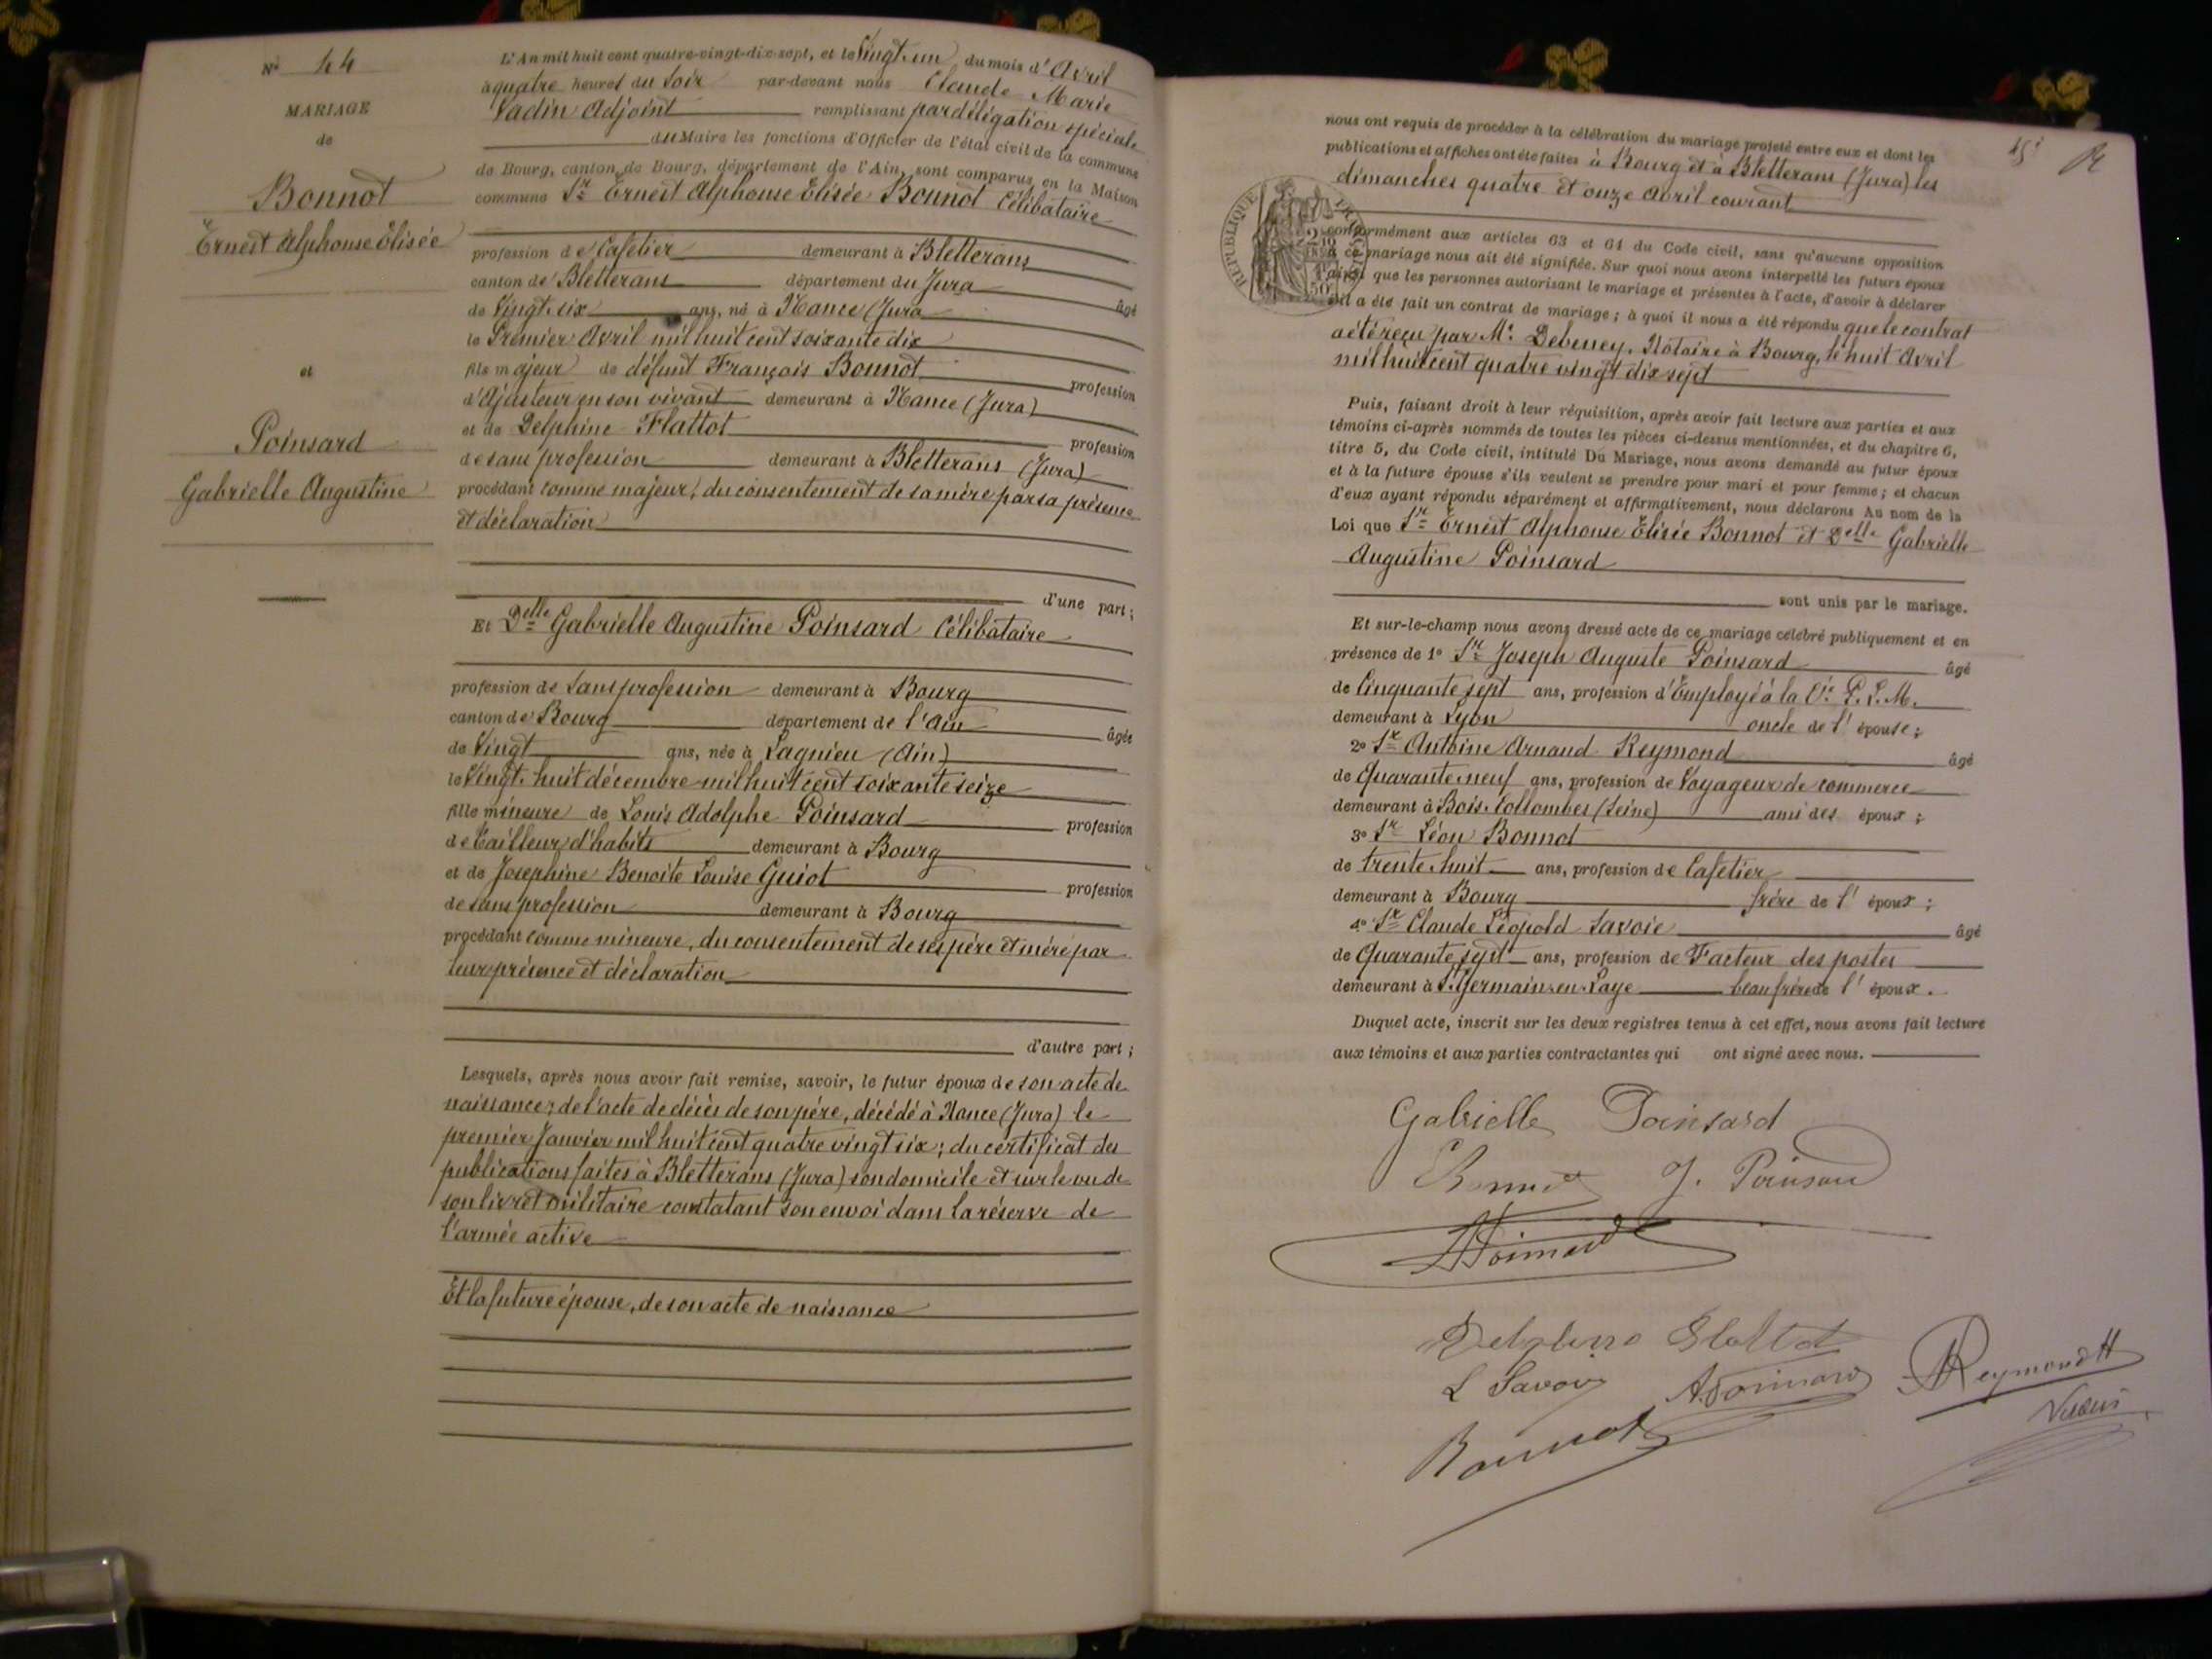 N° 44
MARIAGE
de
Bonnot
Ernest Alphonse Elisée
et
Poinsard
Gabrielle Augustine
L'An mil huit cent quatre-vingt-dix-sept, et le Vingt-un du mois d'Avril
à quatre heures du Soir par-devant nous Claude Marie
Vadin Adjoint remplissant par délégation spéciale
du Maire les fonctions d'Officier de l'état civil de la commune
de Bourg, canton de Bourg, département de l'Ain, sont comparus en la Maison
commune Sr Ernest Alphonse Elisée Bonnot Célibataire
profession de Cafetier demeurant à Bletterans
canton de Bletterans département du Jura âgé
de Vingt-six ans, né à Nance (Jura
le Premier Avril mil huit cent soixante dix
fils majeur de défunt François Bonnot profession
d'Ajusteur en son vivant demeurant à Nance (Jura)
et de Delphine Flattot profession
de sans profession demeurant à Bletterans (Jura)
procédant comme majeur, du consentement de sa mère par sa présence
et déclaration
d'une part;
Et Delle Gabrielle Augustine Poinsard Célibataire
profession de sans profession demeurant à Bourg
canton de Bourg département de l'Ain âgée
de Vingt ans, née à Lagnieu (Ain)
le Vingt-huit décembre mil huit cent soixante seize
fille mineure de Louis Adolphe Poinsard profession
de Tailleur d'habits demeurant à Bourg
et de Josephine Benoite Louise Guiot profession
de sans profession demeurant à Bourg
procédant comme mineure, du consentement de ses père et mère par
leur présence et déclaration
d'autre part;
Lesquels, après nous avoir fait remise, savoir, le futur époux de son acte de
naissance; de l'acte de décès de son père, décédé à Nance (Jura) le
premier Janvier mil huit cent quatre vingt six; du certificat des
publications faites à Bletterans (Jura) son domicile et sur le vu de
son livret militaire constatant son envoi dans la réserve de
l'armée active
Et la future épouse, de son acte de naissance
nous ont requis de procéder à la célébration du mariage projeté entre eux et dont les
publications et affiches ont été faites à Bourg et à Bletterans (Jura) les
dimanches quatre et onze Avril courant
REPUBLIQUE FRANÇAISE
conformément aux articles 63 et 64 du Code civil, sans qu'aucune opposition
à ce mariage nous ait été signifiée. Sur quoi nous avons interpellé les futurs époux
ainsi que les personnes autorisant le mariage et présentes à l'acte, d'avoir à déclarer
s'il a été fait un contrat de mariage; à quoi il nous a été répondu que le contrat
a été reçu par Me Debeney, Notaire à Bourg, le huit Avril
mil huit cent quatre vingt dix sept
Puis, faisant droit à leur réquisition, après avoir fait lecture aux parties et aux
témoins ci-après nommés de toutes les pièces ci-dessus mentionnées, et du chapitre 6,
titre 5, du Code civil, intitulé Du Mariage, nous avons demandé au futur époux
et à la future épouse s'ils veulent se prendre pour mari et pour femme; et chacun
d'eux ayant répondu séparément et affirmativement, nous déclarons Au nom de la
Loi que Sr Ernest Alphonse Elisée Bonnot et Delle Gabrielle
Augustine Poinsard
sont unis par le mariage.
Et sur-le-champ nous avons dressé acte de ce mariage célébré publiquement et en
présence de 1° Sr Joseph Auguste Poinsard âgé
de Cinquante sept ans, profession d'Employé à la Cie P.L.M.
demeurant à Lyon oncle de l'épouse;
2° Sr Antoine Arnaud Reymond âgé
de Quarante neuf ans, profession de Voyageur de commerce
demeurant à Bois-Collombes (Seine) ami des époux;
3° Sr Léon Bonnot
de trente-huit ans, profession de Cafetier
demeurant à Bourg frère de l'époux;
4° Sr Claude Léopold Savoie âgé
de Quarante sept ans, profession de Facteur des postes
demeurant à St Germain-en-Laye beau frère de l'époux.
Duquel acte, inscrit sur les deux registres tenus à cet effet, nous avons fait lecture
aux témoins et aux parties contractantes qui ont signé avec nous.
Gabrielle Poinsard
Bonnot J. Poinsard
Poinsard
Delphine Flattot
L Savoie A. Poinsard Reymond
Bonnot Vadin